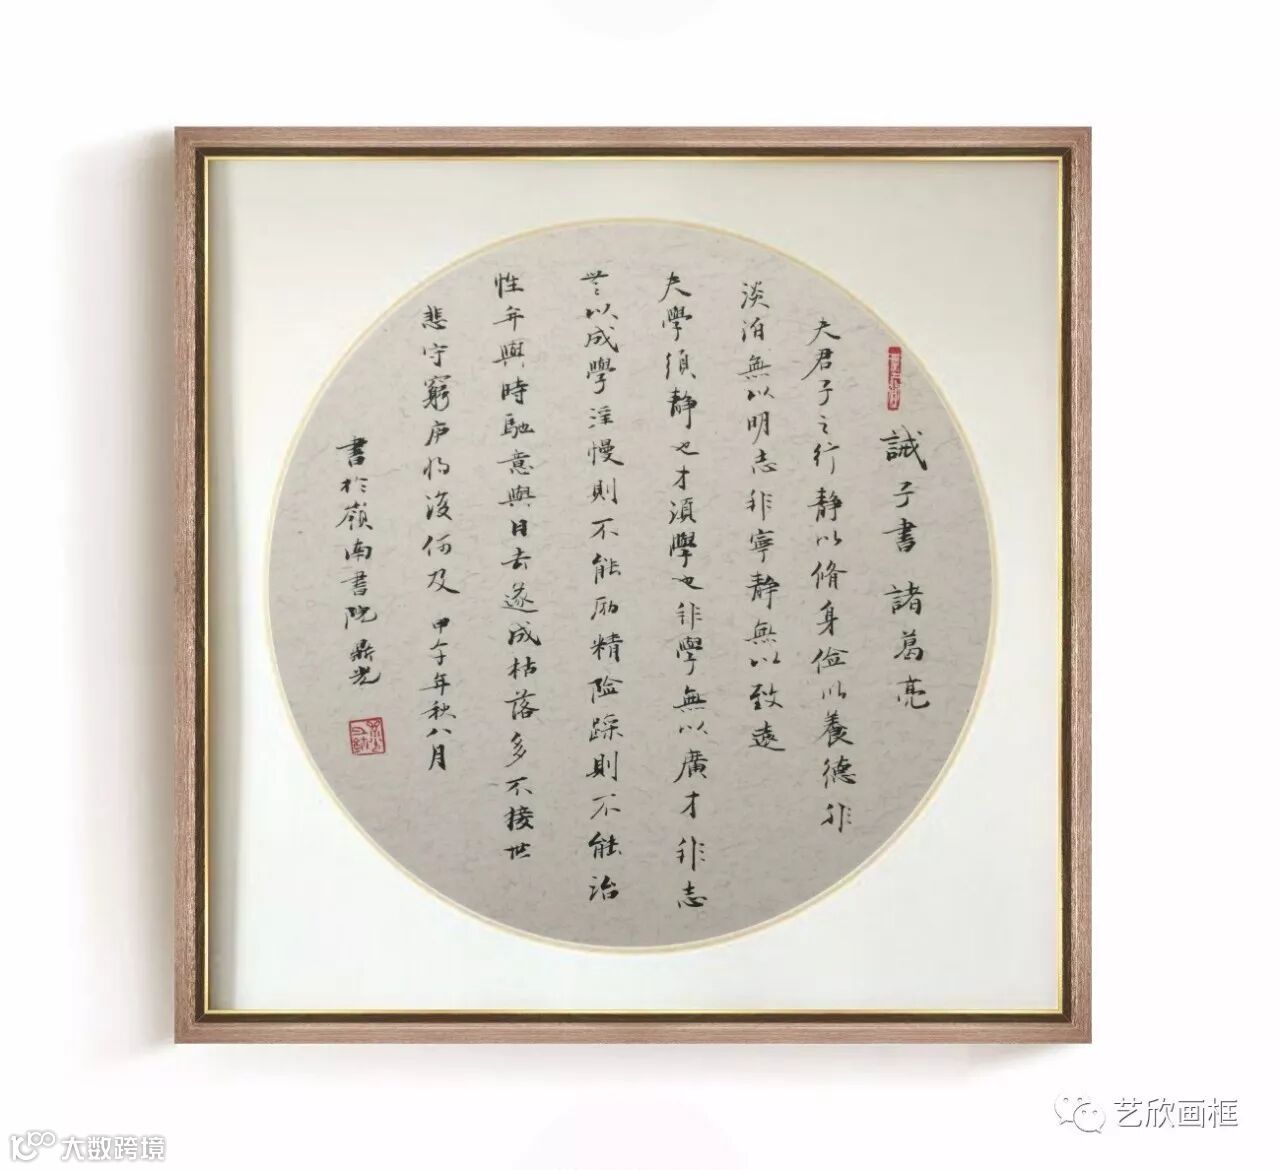 誡子書 諸葛亮
夫君子之行靜以脩身儉以養德非
淡泊無以明志非寧靜無以致遠
夫學須靜也才須學也非學無以廣才非志
無以成學淫慢則不能勵精險躁則不能治
性年與時馳意與日去遂成枯落多不接世
悲守窮廬將復何及 甲午年秋八月
書於嶺南書院
艺欣画框
大数跨境